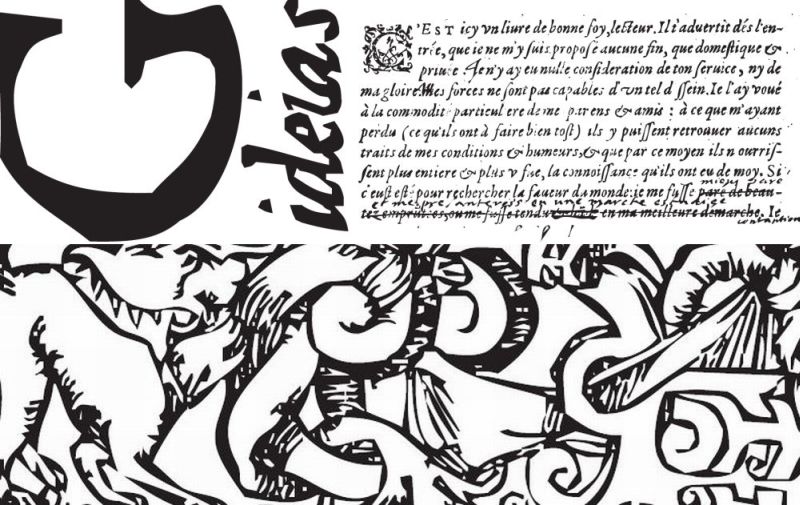 G
ideias
C'EST icy vn liure de bonne foy, lecteur. Il t'aduertit dés l'en-
trée, que ie ne m'y suis proposé aucune fin, que domestique &
priuee. Ie n'y ay eu nulle consideration de ton seruice, ny de
ma gloire. Mes forces ne sont pas capables d'vn tel dessein. Ie l'ay voué
à la commodité particuliere de mes parens & amis : à ce que m'ayant
perdu (ce qu'ils ont à faire bien tost) ils y puissent retrouuer aucuns
traits de mes conditions & humeurs, & que par ce moyen ils nourris-
sent plus entiere & plus vifue, la connoissance qu'ils ont eu de moy. Si
c'eust esté pour rechercher la faueur du monde: ie me fusse paré de beau-
tez empruntees, ou me fusse tendu en ma meilleure demarche. Ie